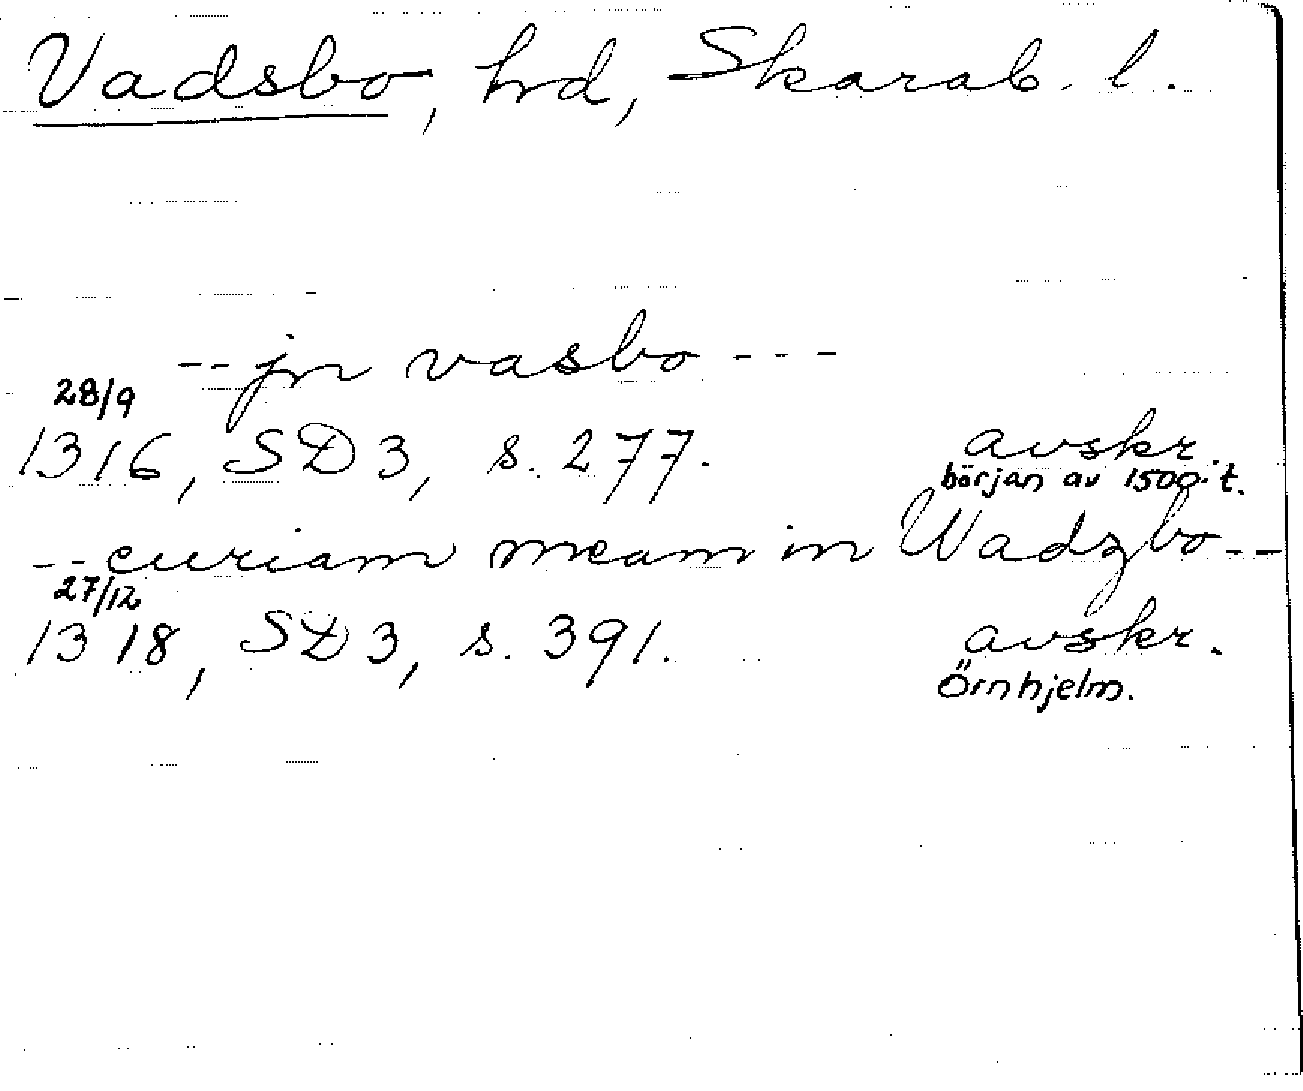 Vadsbo, hd, Skarab. l.
-- jn vasbo ---
28/9
1316, SD 3, s. 277. avskr.
början av 1500-t.
-- curiam meam in Wadzbo --
27/12
1318, SD 3, s. 391. avskr.
Örnhjelm.